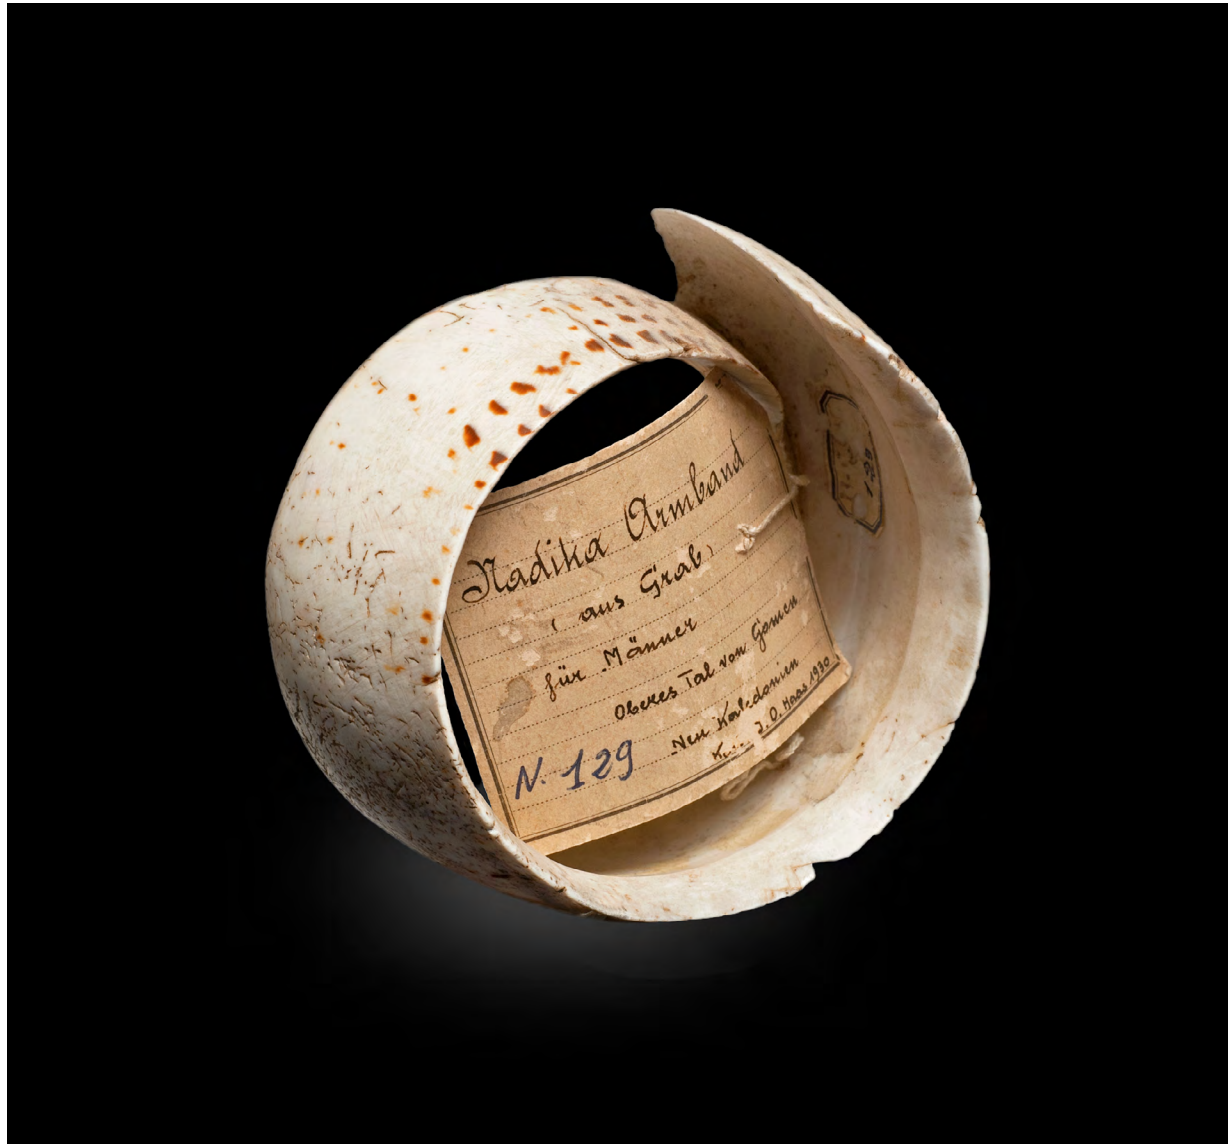 Nadika Armband
(aus Grab)
für Männer
Oberes Tal von Gomen
Neu Kaledonien
J. O. Haas 1930
N. 129
129